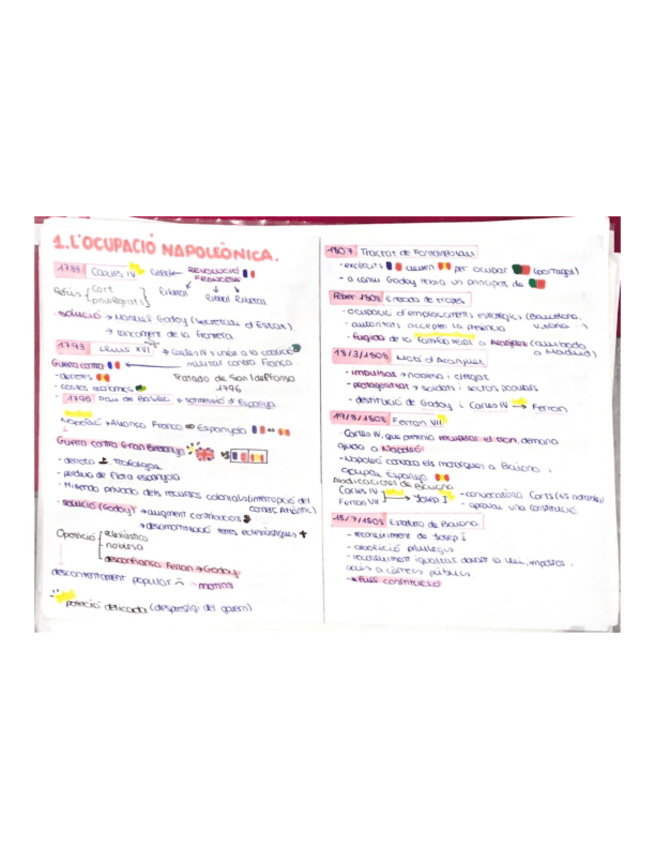 1. L'OCUPACIÓ NAPOLEÒNICA.
1788 Carles IV Gir REVOLUCIÓ FRANCESA
Refús Cort privilegiats
Ribersos
- solució → Manuel Godoy (Secretari d'Estat)
→ tancament de la frontera
1793 Lluís XVI → Carles IV s'uneix a la coalició
Guerra contra militar contra França
- derrotes Tratado de San Ildefonso
- costos econòmics 1796
- 1795 Pau de Basilea → submissió d'Espanya
Napoleó → Aliança Franco Espanyola
Guerra contra Gran Bretanya vs
- derrota Trafalgar
- pèrdua de flota espanyola
- Hisenda privada dels recursos colonials (interrupció del
comerç Atlàntic)
- solució (Godoy) → augment contribucions
→ desamortització terres eclesiàstiques
Oposició eclesiàstica
noblesa
desconfiança Ferran → Godoy
descontentament popular → motins
posició delicada (desprestigi del govern)
1807 Tractat de Fontainebleau
- exèrcits per ocupar (Portugal)
- a canvi Godoy rebria un principat de
Febrer 1808 Entrada de tropes
- ocupació d'emplaçaments estratègics (Barcelona,
- autoritats accepten la presència Vitòria...)
- fugida de la família reial a Aranjuez (
a Madrid)
18/3/1808 Motí d'Aranjuez
- impulsat → noblesa i clergat
- protagonitzat → soldats i sectors populars
- destitució de Godoy i Carles IV → Ferran
19/3/1808 Ferran VII
- Carles IV, que pretenia recuperar el tron, demana
ajuda a Napoleó
- Napoleó convoca els monarques a Baiona i
ocupa Espanya
Abdicacions de Baiona
Carles IV
Ferran VII → Josep I
- convocatòria Corts (65 notables)
- aprovar una constitució
18/7/1808 Estatut de Baiona
- reconeixement de Josep I
- abolició privilegis
- reconeixement igualtat davant la llei, impostos i
accés a càrrecs públics